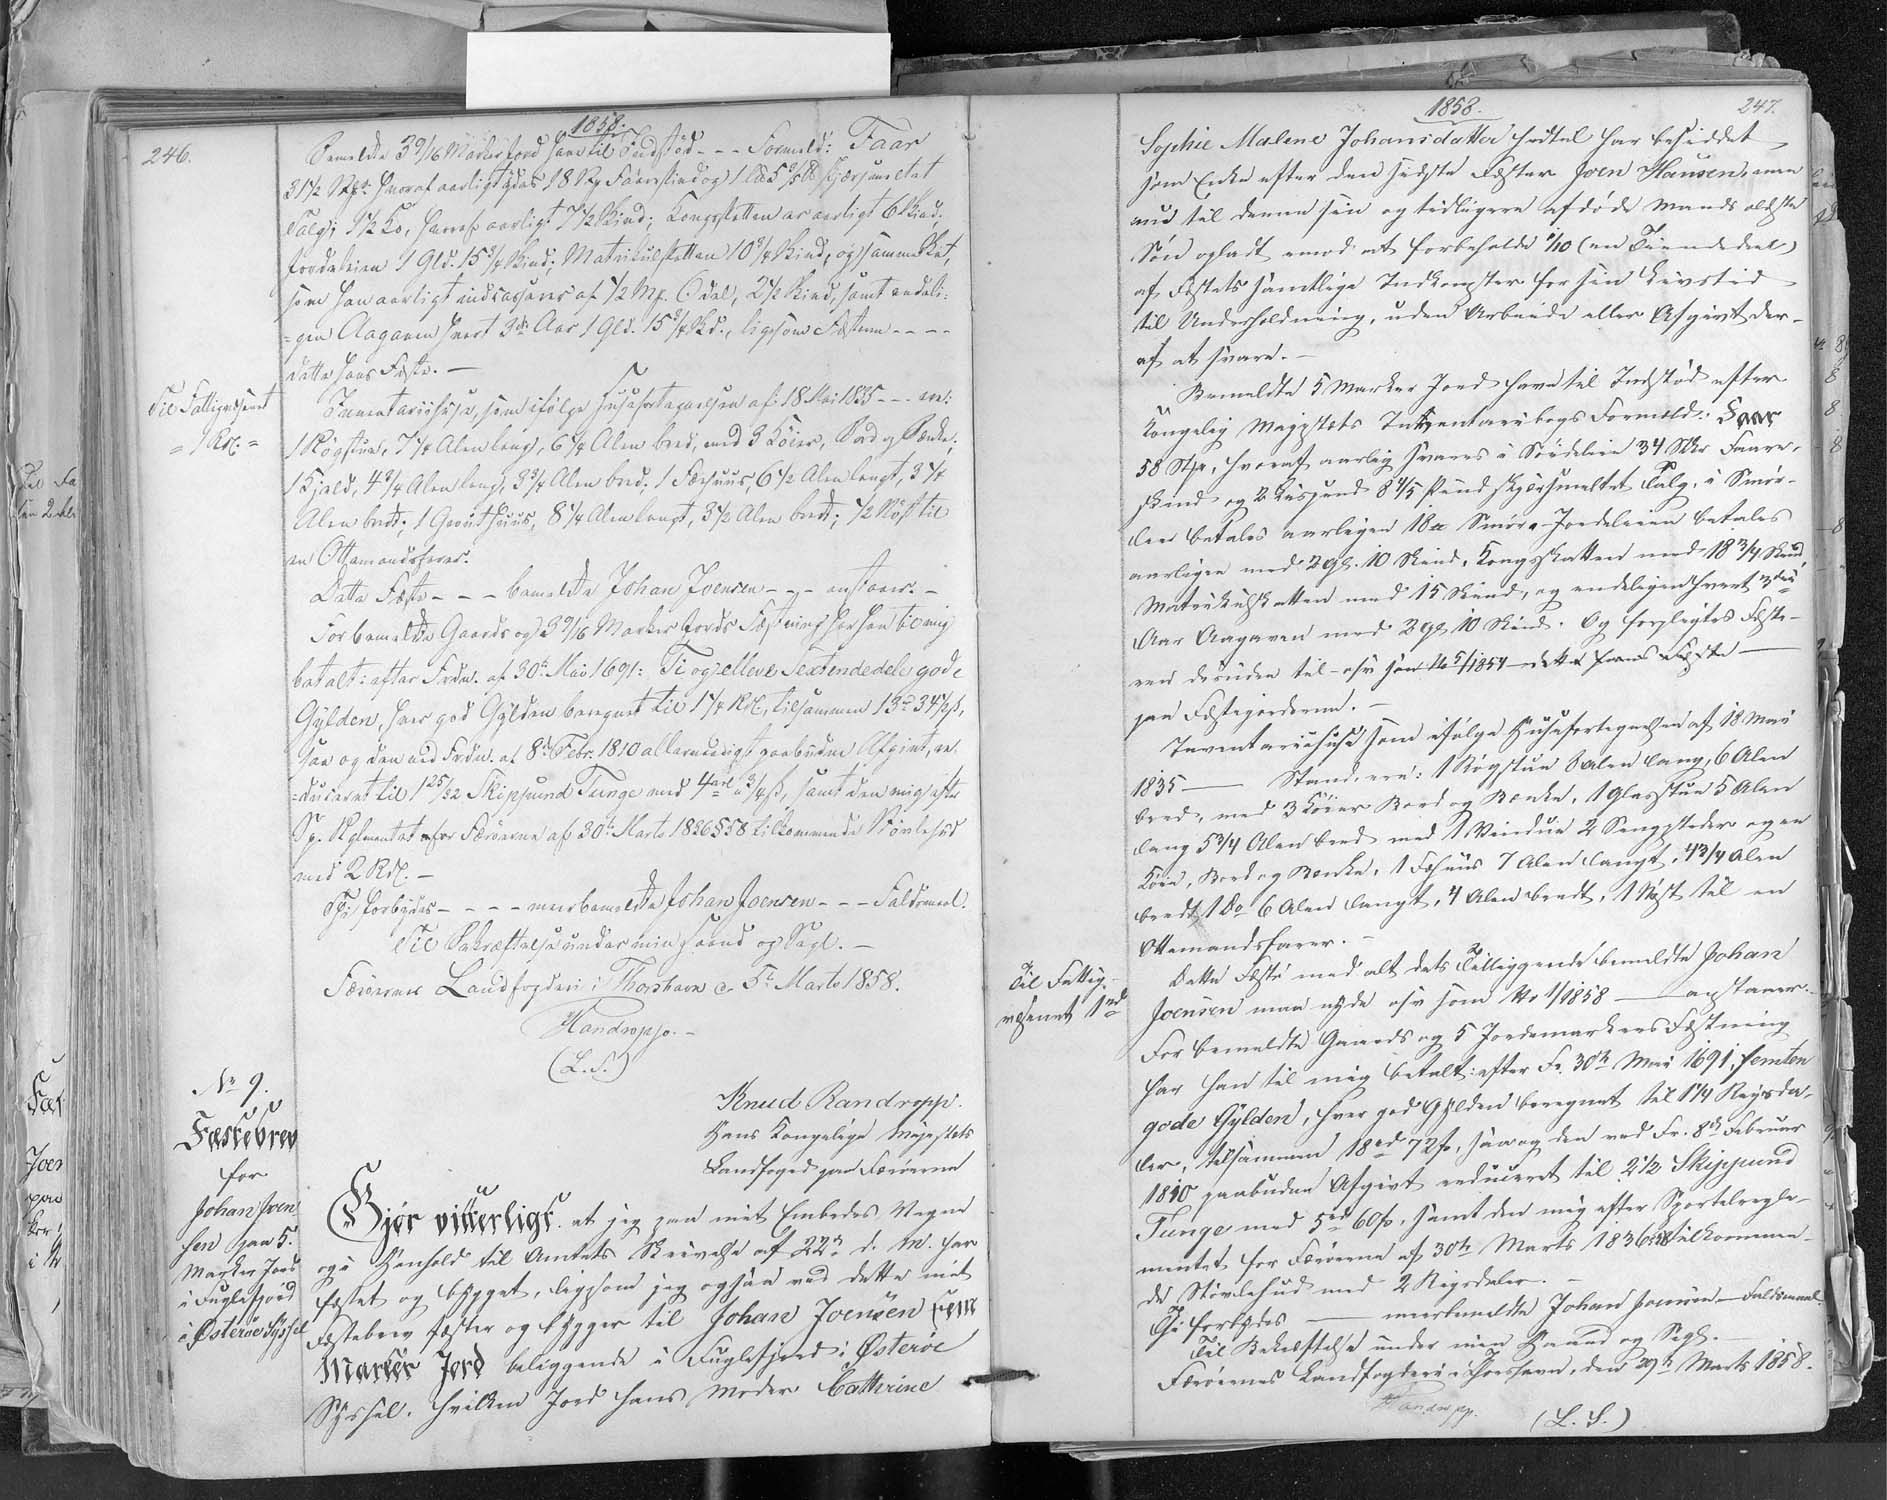 246.
1858.
Bemeldte 3 9/16 Marker Jord have til Indstød - - - Formeld: Faar
31½ Stk. hvoraf aarligt ydes 18 Stk Faareskind og 1 L℔ 5 2/5 ℔ skjærsmeltet
Talg; 1½ Ko, heraf aarligt 7½ Skind; Kongsskatten er aarligt 6 Skind,
Jordeleien 1 Gld. 15¾ Skind; Matrikulskatten 10¾ Skind, og sammesket,
som han aarligt indcasseres af ½ Mk. Odel, 2½ Skind, samt endeli-
=gen Aagaven hvert 3die Aar 1 Gld. 15¾ Skd., ligesom Fæsteren - - - -
dette hans Fæste. -
Til Fattigvæsenet
= 1 Rd. =
Inventariihuse, som ifølge Huusfortegnelsen af 18 Mai 1835 - - - ere:
1 Røgstue, 7¼ Alen lang, 6¼ Alen bred, med 3 Køier, Bord og Bænke;
1 Hjald, 4¾ Alen lang, 3¾ Alen bred; 1 Fæhuus, 6½ Alen langt, 3¼
Alen bredt; 1 Grouthuus, 8¼ Alen langt, 3½ Alen bredt; ½ Nøst til
en Ottemandsfarer.
Dette Fæste - - - bemeldte Johan Joensen - - - anstaaer. -
For bemeldte Gaards og 3 9/16 Marker Jords Fæstning har han til mig
betalt: efter Frdn. af 30te Mai 1691: Ti og elleve Sextendedele gode
Gylden, hver god Gylden beregnet til 1¼ Rd, tilsammen 13rd 34½ß,
saa og den ved Frdn. af 8de Febr. 1810 allernaadigst paabudne Afgivt, re-
=duceret til 1 25/32 Skippund Tunge med 4rd ¾ß, samt den mig efter
Sp. Reglementet for Færøerne af 30te Marts 1836 § 58 tilkommende Støvlehud
med 2 Rd. -
Thi forbydes - - - - meerbemeldte Johan Joensen - - - Faldsmaal.
Til Bekræftelse under min Haand og Segl. -
Færøernes Landfogderi i Thorshavn d. 5te Marts 1858.
Randropp. -
(L. S.)
No 9.
Fæstebrev
for
Johan Joen
sen paa 5.
Marker Jord
i Fuglefjord
i Østerøe Syssel
Knud Randropp.
Hans Kongelige Majestets
Landfoged paa Færøerne
Gjør vitterligt. at jeg paa mit Embedes Vegne
og i Henhold til Amtets Skrivelse af 22de d. M. har
fæstet og bygget, ligesom jeg ogsaa ved dette mit
Fæstebrev fæster og bygger til Johan Joensen Fem
Marker Jord beliggende i Fuglefjord i Østerøe
Syssel. hvilken Jord hans Moder Cathrine
1858.
247.
Sophie Malene Johansdatter hidtil har besiddet
som Enke efter den sidste Fæster Joen Hansen, men
nu til denne sin og tidligere afdøde Mands ældste
Søn opladt imod at forbeholde 1/10 (en Tiendedeel)
af Fæstets samtlige Indkomster for sin Livstid
til Underholdning, uden Arbeide eller Afgivt der-
af at svare. -
Bemeldte 5 Marker Jord have til Indstød efter
Kongelig Majestets Inventariibogs Formeld: Faar
58 Stk, hvoraf aarlig svares i Landeleie 34 Stkr Faare-
skind og 2 Lispund 8 4/5 Pund skjærsmeltet Talg, i Smør-
leie betales aarligen 18 ℔ Smør. Jordeleien betales
aarligen med 2 Gl. 10 Skind, Kongsskatten med 18¾ Skind
Matrikulskatten med 15 Skind, og endeligen hvert 3die
Aar Aagaven med 2 Gl 10 Skind. Og forpligtes Fæste-
ren desuden til - osv som No 5/1854 - dette hans Fæste -
paa Fæstejorderne. -
Inventariihuse som ifølge Huusfortegnelsen af 18 Mai
1835 — Stand, ere: 1 Røgstue 8 Alen lang, 6 Alen
bred, med 3 Køier Bord og Bænke, 1 Glasstue 5 Alen
lang 5¾ Alen bred med 1 Vindue 2 Sengesteder og en
Køie, Bord og Bænke, 1 Fæhuus 7 Alen langt, 4¾ Alen
bredt 1 Do 6 Alen langt, 4 Alen bredt, 1 Nøst til en
Ottemandsfarer. -
Til Fattig-
væsenet 1rd
Dette Fæste med alt dets Tilliggende bemeldte Johan
Joensen maa nyde osv som No 1/1858 — anstaaer. -
For bemeldte Gaards og 5 Jordemarkers Fæstning
har han til mig betalt: efter Fr. 30te Mai 1691, femten
gode Gylden, hver god Gylden beregnet til 1¼ Rigsda-
ler, tilsammen 18rd 72ß, saa og den ved Fr. 8de Februar
1810 paabudne Afgivt reduceret til 2½ Skippund
Tunge med 5rd 60ß, samt den mig efter Sportelregle-
mentet for Færøerne af 30te Marts 1836 § 58 tilkommen-
de Støvlehud med 2 Rigsdaler. -
Thi forbydes — meerbemeldte Johan Joensen - Faldsmaal.
Til Bekræftelse under min Haand og Segl. -
Færøernes Landfogderi i Thorshavn, den 29de Marts 1858.
Randropp.
(L. S.)